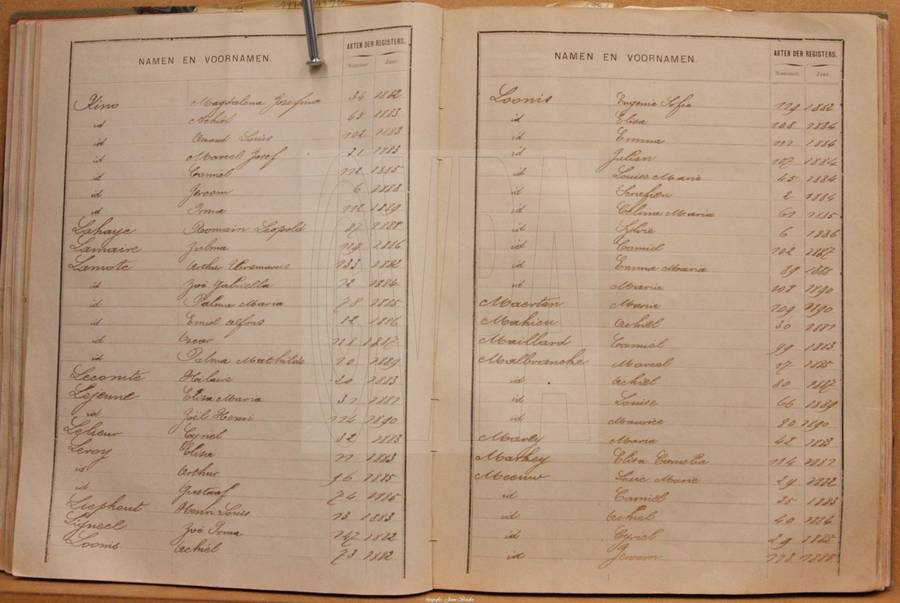 NAMEN EN VOORNAMEN.
AKTEN DER REGISTERS.
Nummer. Jaar.
Kino Magdalena Josefina 34 1882
id Achiel 65 1883
id Amand Louis 102 1883
id Marcel Josef 21 1885
id Camiel 112 1885
id Jeroom 6 1888
id Irma 112 1889
Lahaye Romain Leopold 87 1888
Lamaire Julma 1886
Lamote Arthur 133 1882
id Zoë Gabriella 72 1884
id Palma Maria 78 1885
id Emiel Alfons 12 1886
id Oscar 118 1887
id Palma Mathilde 70 1889
Lecomte Hilaire 20 1883
Lejeune Elisa Maria 31 1887
id Joël Henri 114 1890
Lelieur Cyriel 32 1883
Leroy Elisa 11 1883
id Arthur 96 1885
id Gustaaf 76 1886
Liephout Henri Louis 13 1883
Ligneel Zoë Irma 147 1882
Loonis Achiel 73 1882
NAMEN EN VOORNAMEN.
AKTEN DER REGISTERS.
Nummer. Jaar.
Loonis Eugenie Sofia 119 1882
id Elisa 108 1884
id Emma 111 1884
id Julien 107 1884
id Louise Marie 45 1884
id Serafien 2 1884
id Celina Maria 61 1885
id Silvie 6 1886
id Camiel 102 1887
id Emma Maria 89 1888
id Marie 108 1890
Maerten Marie 109 1890
Mahieu Achiel 30 1887
Maillard Camiel 99 1883
Malbranche Marcel 17 1885
id Achiel 80 1887
id Louise 66 1889
id Maurice 80 1890
Marey Maria 42 1883
Markey Elisa Cornelia 114 1887
Meeuw Marie 29 1882
id Camiel 25 1883
id Achiel 40 1884
id Cyriel 29 1885
id Jeroom 113 1888